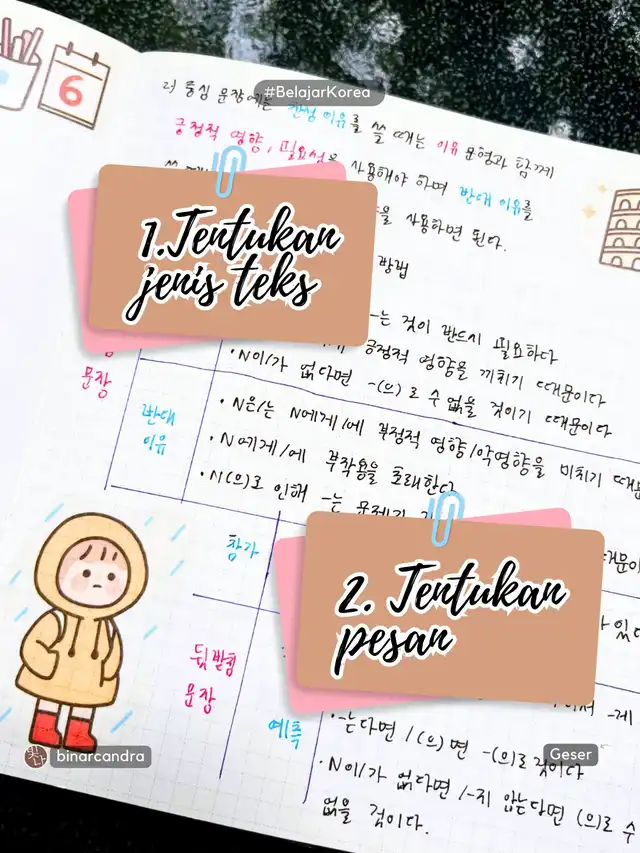 6
#BelajarKorea
중심 문장에는 찬성 이유를 쓸 때는 이유 문형과 함께
긍정적 영향, 필요성을 사용해야 하며 반대 이유를
을 사용하면 된다.
방법
1.Tentukan
jenis teks
-는 것이 반드시 필요하다
긍정적 영향을 끼치기 때문이다
• N이/가 없다면 -(으)로 수 없을 것이기 때문이다
문장
반대
이유
• N은/는 N에게/에 부정적 영향/악영향을 미치기 때문
• N에게/에 부작용을 초래한다
• N(으)로 인해 -는 문제가
참가
2. Tentukan
pesan
뒷받침
문장
예측
• -는다면 /(으)면 -(으)로 것이다
• N이/가 없다면 /-지 않는다면 (으)로 수
없을 것이다.
binarcandra
Geser